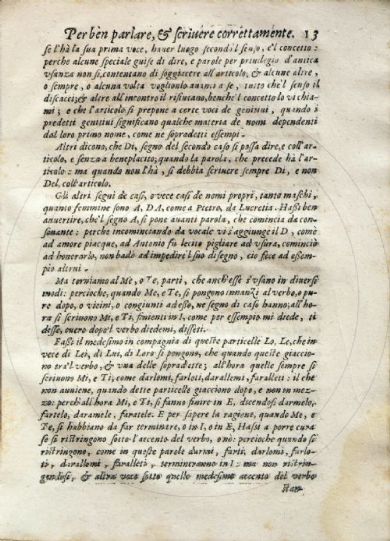 Per ben parlare, & scrivere correttamente. 13
se l'hà la sua prima voce, haver luogo secondo il senso, e'l concetto:
perche alcune speciale guise di dire, e parole per privilegio d'antica
usanza non si contentano di soggiacere all'articolo, & alcune altre,
o sempre, o alcuna volta vogliono avanti a se, tutto che'l senso il
discacci; & altre all'incontro il rifiutano, benche'l concetto lo vi chia-
mi; e che l'articolo si prepone a certe voci de genitivi, quando i
predetti genitivi significano qualche materia de nomi dependenti
dal loro primo nome, come ne sopradetti essempi.
Altri dicono, che Di, segno del secondo caso si possa dire, e coll'ar-
ticolo, e senza a beneplacito; quando la parola, che precede hà l'ar-
ticolo: ma quando non l'hà, si debbia scrivere sempre Di, e non
Del, coll'articolo.
Gli altri segni de casi, o vece casi de nomi propri, tanto maschi,
quanto femmine sono A, DA, come a Pietro, da Lucretia. Hassi ben
avvertire, che'l segno A, si pone avanti parola, che comincia da con-
sonante: perche incominciando da vocale vi s'aggiunge il D, como
ad amore piacque, ad Antonio fu lecito pigliare ad usura, cominciò
ad honorarlo, non badò ad impedire il suo disegno, ciò fece ad essem-
pio altrui.
Ma torniamo al Me, o Te, parti, che anch'esse s'usano in diversi
modi: percioche, quando Me, e Te, si pongono innanzi al verbo, o pu-
re dopo, o vicini, o congiunti adesso, ne segno di caso hanno; all'ho-
ra si scrivono Mi, e Ti, finienti in I, come per essempio mi diede, ti
disse, overo dopo'l verbo diedemi, disseti.
Fassi il medesimo in compagnia di queste particelle Lo, Le, che in
vece di Lei, di Lui, di Loro si pongono, che quando queste giaccio
no tra'l verbo, & una delle sopradette; all'hora quelle sempre si
scrivono Mi, e Ti; come darlomi, farloti, darallemi, faralleti: il che
non avviene, quando dette particelle giacciono dopo, e non in mez-
zo: perch'all'hora Mi, e Ti, si fanno finire in E, dicendosi darmelo,
fartelo, daramele, faratele. E per sapere la ragione, quando Me, e
Te, si hubbiano da far terminare, o in I, o in E, Hassi a porre cura
se si ristringono sotto l'accento del verbo, o nò: percioche quando si
ristringono, come in queste parole darmi, farti, darlomi, farlo-
ti, darallemi, faralleti, termineranno in I: ma non ristrin-
gendosi, & altra voce sotto quello medesimo accento del verbo
stan-